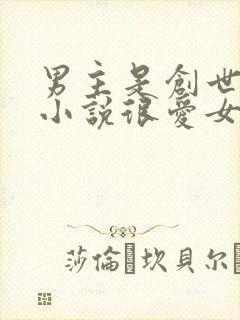 男主是創世
小說很愛女
莎倫·坎貝尔